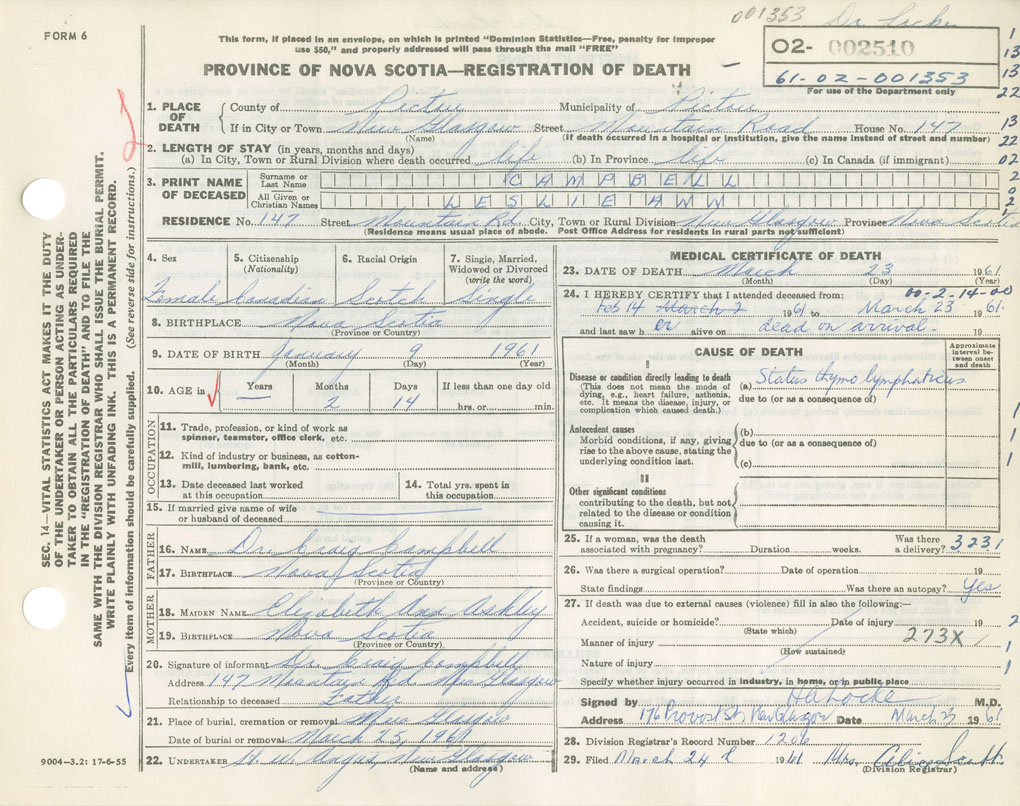 001353 Dr. Locke
FORM 6
This form, if placed in an envelope, on which is printed "Dominion Statistics—Free, penalty for improper
use $50," and properly addressed will pass through the mail "FREE"
O2- 002510
61-02-001353
For use of the Department only
PROVINCE OF NOVA SCOTIA—REGISTRATION OF DEATH
1. PLACE OF DEATH
County of Pictou Municipality of Pictou
If in City or Town New Glasgow Street Mountain Road House No. 147
(Name) (If death occurred in a hospital or institution, give the name instead of street and number)
2. LENGTH OF STAY (in years, months and days)
(a) In City, Town or Rural Division where death occurred life (b) In Province life (c) In Canada (if immigrant)
3. PRINT NAME OF DECEASED
Surname or Last Name CAMPBELL
All Given or Christian Names LESLIE ANN
RESIDENCE No. 147 Street Mountain Rd. City, Town or Rural Division New Glasgow Province Nova Scotia
(Residence means usual place of abode. Post Office Address for residents in rural parts not sufficient)
4. Sex 5. Citizenship (Nationality) 6. Racial Origin 7. Single, Married, Widowed or Divorced (write the word)
Female Canadian Scotch Single
8. BIRTHPLACE Nova Scotia
(Province or Country)
9. DATE OF BIRTH January 9 1961
(Month) (Day) (Year)
10. AGE in Years Months Days If less than one day old
— 2 14 hrs. or min.
OCCUPATION
11. Trade, profession, or kind of work as
spinner, teamster, office clerk, etc.
12. Kind of industry or business, as cotton-
mill, lumbering, bank, etc.
13. Date deceased last worked
at this occupation
14. Total yrs. spent in
this occupation
15. If married give name of wife
or husband of deceased
FATHER
16. NAME Dr. Craig Campbell
17. BIRTHPLACE Nova Scotia
(Province or Country)
MOTHER
18. MAIDEN NAME Elizabeth Ann Ashley
19. BIRTHPLACE Nova Scotia
(Province or Country)
20. Signature of informant Dr. Craig Campbell
Address 147 Mountain Rd New Glasgow
Relationship to deceased Father
21. Place of burial, cremation or removal New Glasgow
Date of burial or removal March 25, 1961
22. UNDERTAKER New Glasgow
(Name and address)
MEDICAL CERTIFICATE OF DEATH
23. DATE OF DEATH March 23 1961
(Month) (Day) (Year)
00-2-14-00
24. I HEREBY CERTIFY that I attended deceased from:
Feb 14 March 2 1961 to March 23 1961.
and last saw h er alive on dead on arrival - 19
CAUSE OF DEATH
Approximate interval between onset and death
I
Disease or condition directly leading to death
(This does not mean the mode of
dying, e.g., heart failure, asthenia,
etc. It means the disease, injury, or
complication which caused death.)
(a) Status thymo lymphaticus
due to (or as a consequence of)
Antecedent causes
Morbid conditions, if any, giving
rise to the above cause, stating the
underlying condition last.
(b)
due to (or as a consequence of)
(c)
II
Other significant conditions
contributing to the death, but not
related to the disease or condition
causing it.
25. If a woman, was the death
associated with pregnancy? Duration weeks. Was there
a delivery? 3231
26. Was there a surgical operation? Date of operation 19
State findings Was there an autopsy? Yes
27. If death was due to external causes (violence) fill in also the following:—
Accident, suicide or homicide? Date of injury 19
(State which)
273X
Manner of injury
(How sustained)
Nature of injury
Specify whether injury occurred in industry, in home, or in public place
Signed by HA Locke M.D.
Address 176 Provost St, New Glasgow Date March 23 1961
28. Division Registrar's Record Number 1206
29. Filed March 24th 1961 Mrs.
(Division Registrar)
SEC. 14—VITAL STATISTICS ACT MAKES IT THE DUTY
OF THE UNDERTAKER OR PERSON ACTING AS UNDER-
TAKER TO OBTAIN ALL THE PARTICULARS REQUIRED
IN THE "REGISTRATION OF DEATH" AND TO FILE THE
SAME WITH THE DIVISION REGISTRAR WHO SHALL ISSUE THE BURIAL PERMIT.
WRITE PLAINLY WITH UNFADING INK. THIS IS A PERMANENT RECORD.
Every item of information should be carefully supplied. (See reverse side for instructions.)
9004—3.2: 17-6-55
1
13
13
22
13
22
02
2
0
2
1
1
1
1
2
1
1